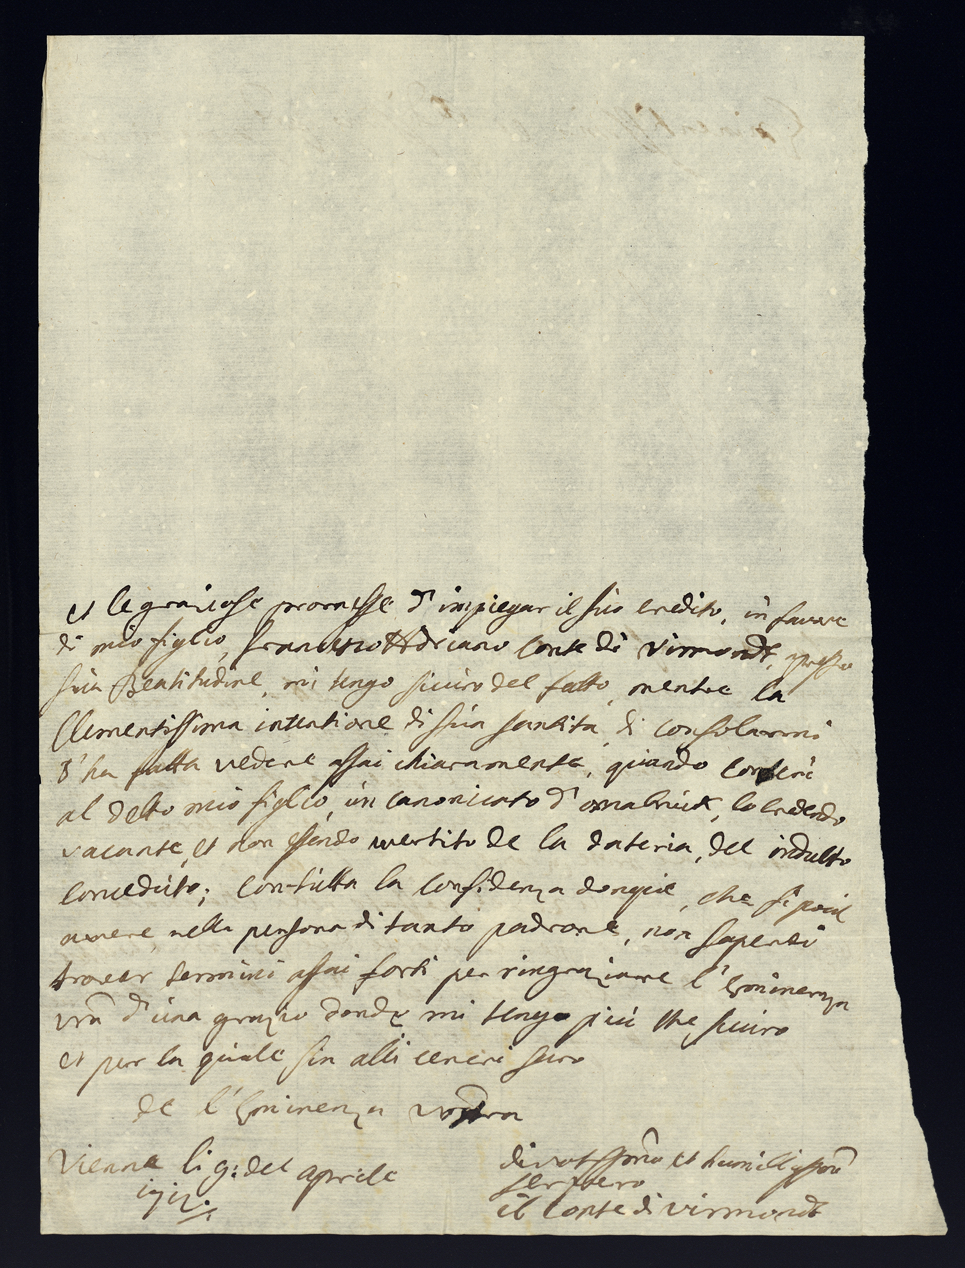 et le graziose promesse d'impiegar il suo credito, in favore
di mio figlio, Francesco Adriano Conte di Virmondt, presso
sua Beatitudine, mi tengo sicuro del fatto, mentre la
Clementissima intentione di sua santita, di consolarmi
s'ha fatta vedere assai chiaramente, quando conferi
al detto mio figlio, un canonicato d'osnabruck, lo credendo
vacante, et non essendo avertito de la dateria, del indulto
conceduto; con tutta la confidenza donque, che si puol
avere, nella persona di tanto padrone, non saperei
trovar termini assai forti per ringraziare l'Eminenza
vrã d'una grazia donde mi tengo più che sicuro
et per la quale sin alli ceneri saro
de l'Eminenza vostra
Vienna li 9: del aprile
divotissmo et humilissmo
servero
il Conte di Virmondt